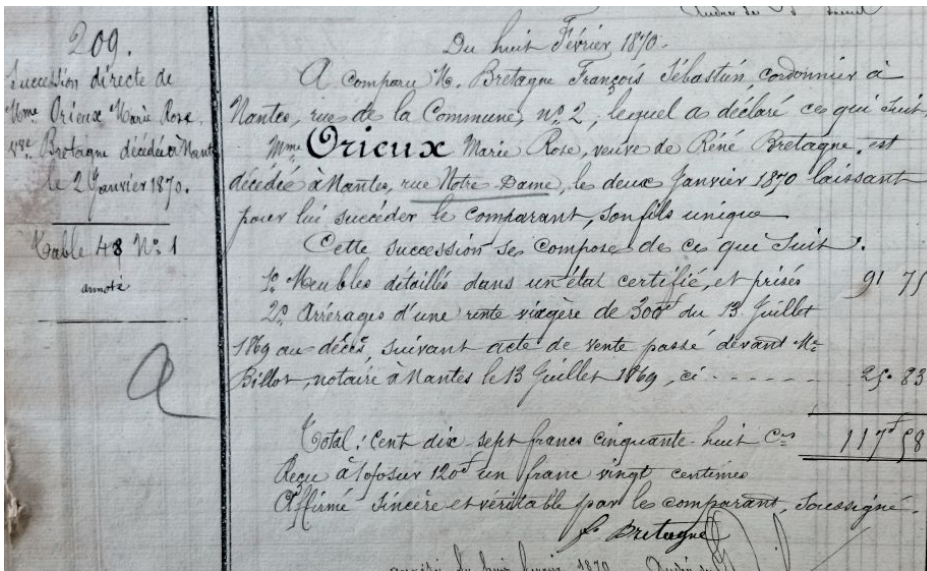 209.
Succession directe de
Mme Orieux Marie Rose.
Vve Bretagne décédée à Nantes
le 2 Janvier 1870.
Table 48 No 1
annoté
Du huit Février 1870.
A comparu M. Bretagne François Sébastien, cordonnier à
Nantes, rue de la Commune, no 2, lequel a déclaré ce qui suit
Mme Orieux Marie Rose, veuve de Réné Bretagne, est
décédée à Nantes, rue Notre Dame, le deux Janvier 1870 laissant
pour lui succéder le comparant, son fils unique
Cette succession se compose de ce qui suit.
1o Meubles détaillés dans un état certifié, et prisés 91 75
2o Arrérages d'une rente viagère de 300f du 13 Juillet
1869 au décès, suivant acte de vente passé devant Me
Billot, notaire à Nantes le 13 Juillet 1869, ci - - - - - 25. 83
Total: Cent dix-sept francs cinquante huit Cmes 117f 58
Reçu à 1 % sur 120f un franc vingt centimes
Affirmé sincère et véritable par le comparant, soussigné.
f. Bretagne
1870